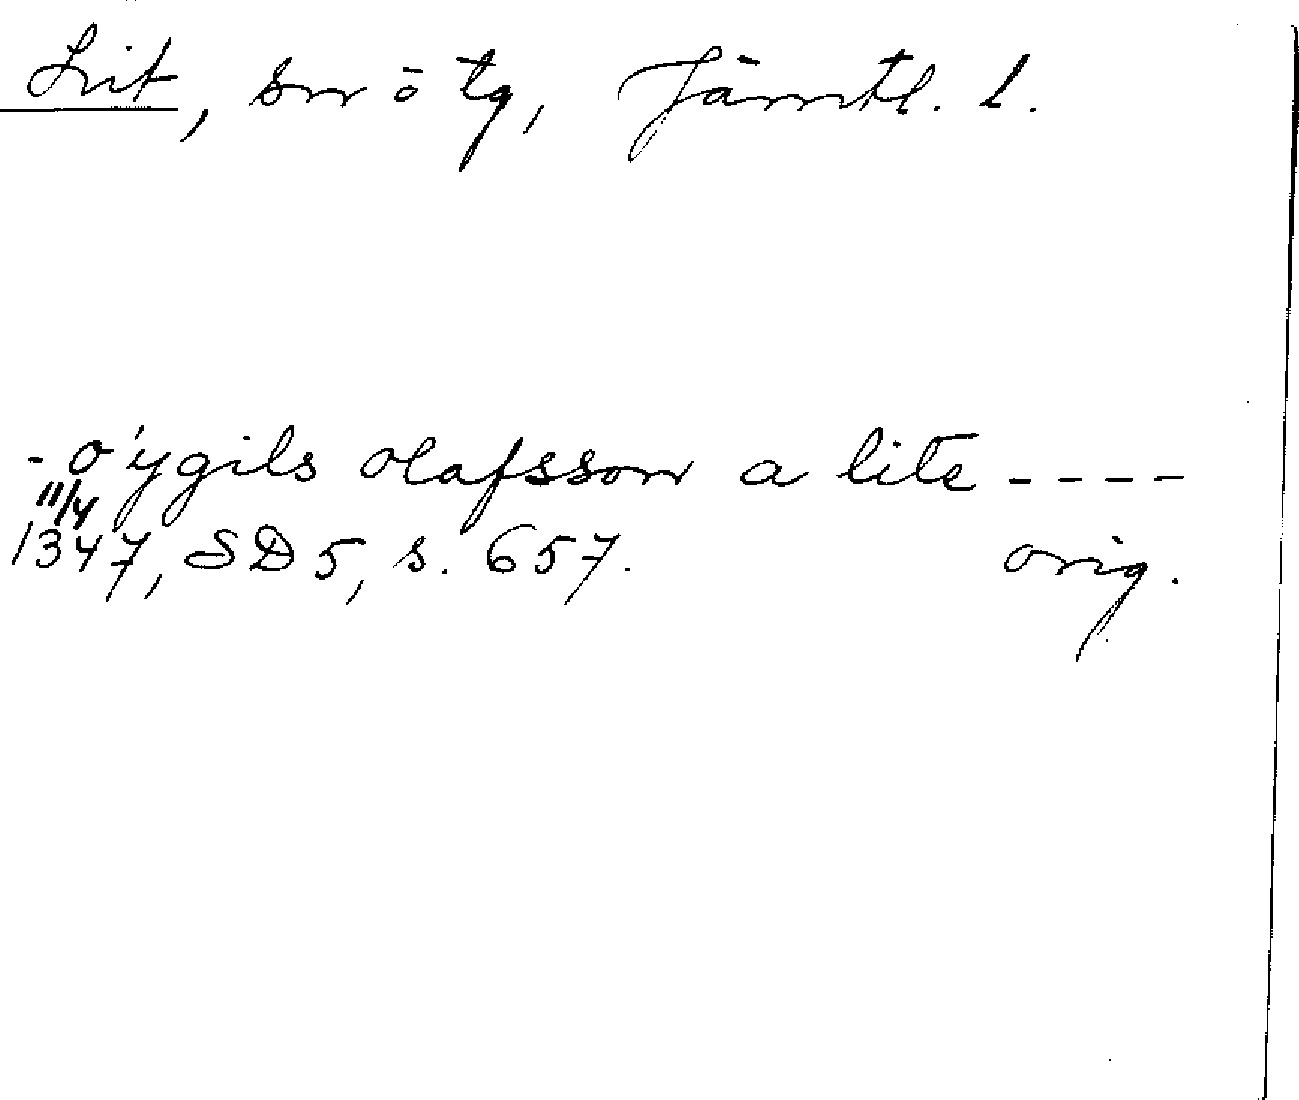 Lit, sn o tg, Jämtl. l.
- o'ygils olafsson a lite ----
11/4
1347, SD 5, s. 657. orig.